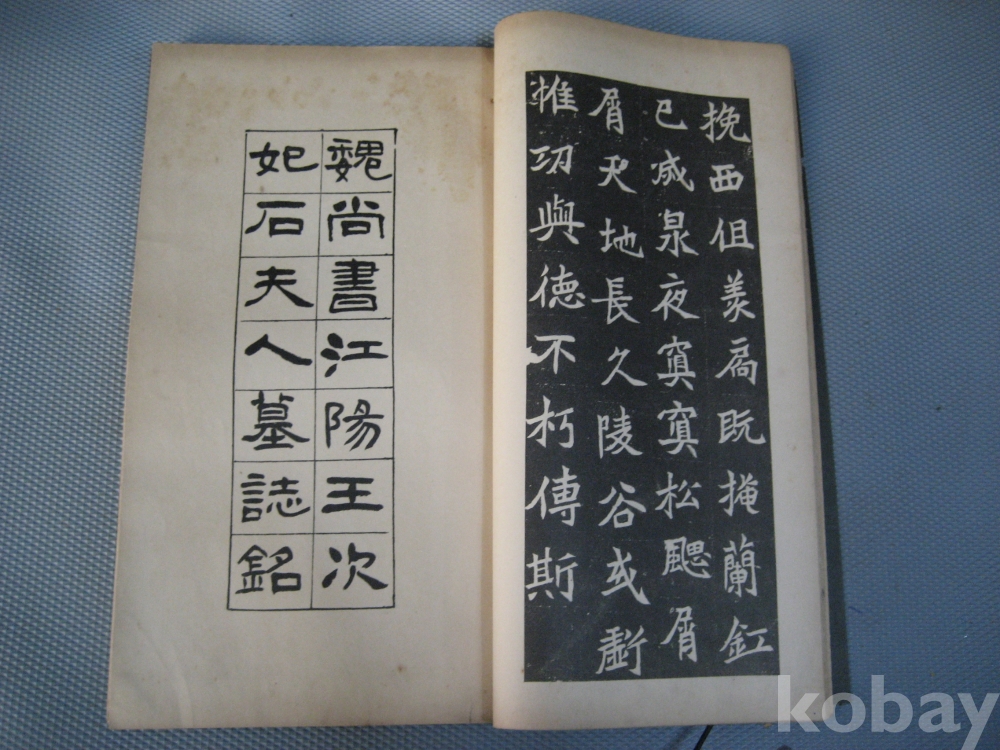 挽西徂羡扃既掩蘭釭
已烕泉夜㝠㝠松颸屑
屑天地長久陵谷或虧
惟功與德不朽傳斯
魏尚書江陽王次
妃石夫人墓誌銘
kobay